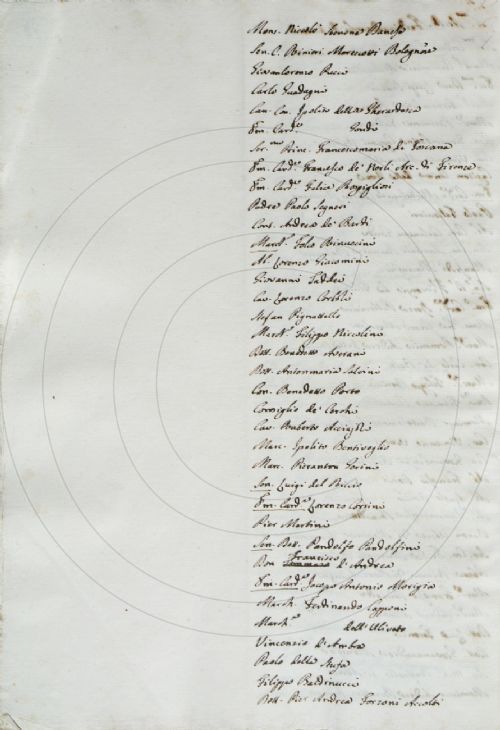 Mons. Niccolò Simone
Sen. C. Binieri Marescotti Bolognese
Giovanlorenzo Pucci
Carlo Guadagni
Cav. Con. Ipolito della Gherardesca
Em. Card.le Gondi
Ser.mo Princ. Francescomaria di Toscana
Em. Card.le Francesco de' Nerli Arc. di Firenze
Em. Card.le Felice Rospigliosi
Padre Paolo Segneri
Cons. Andrea de' Bardi
March. Folo Rinuccini
Ab. Lorenzo Giacomini
Giovanni Taddei
Cav. Lorenzo
Stefan Pignattello
March. Filippo Niccolini
Dott. Benedetto Averani
Dott. Antonmaria Salvini
Con. Benedetto Porto
Consiglio de' Cerchi
Cav. Ruberto Acciajoli
Marc. Ipolito Bentivoglio
Marc. Pieranton Gerini
Sen. Luigi del Riccio
Em. Card.le Lorenzo Corsini
Pier Martini
Sen. Bali. Pandolfo Pandolfini
Francesco
Don Tommaso d'Andrea
Em. Card.le Jacopo Antonio Morigia
March. Ferdinando Capponi
March. dell'Ulivato
Vincenzio d'Ambra
Paolo della Stufa
Filippo Baldinucci
Dott. Pier Andrea Forzoni Accolti